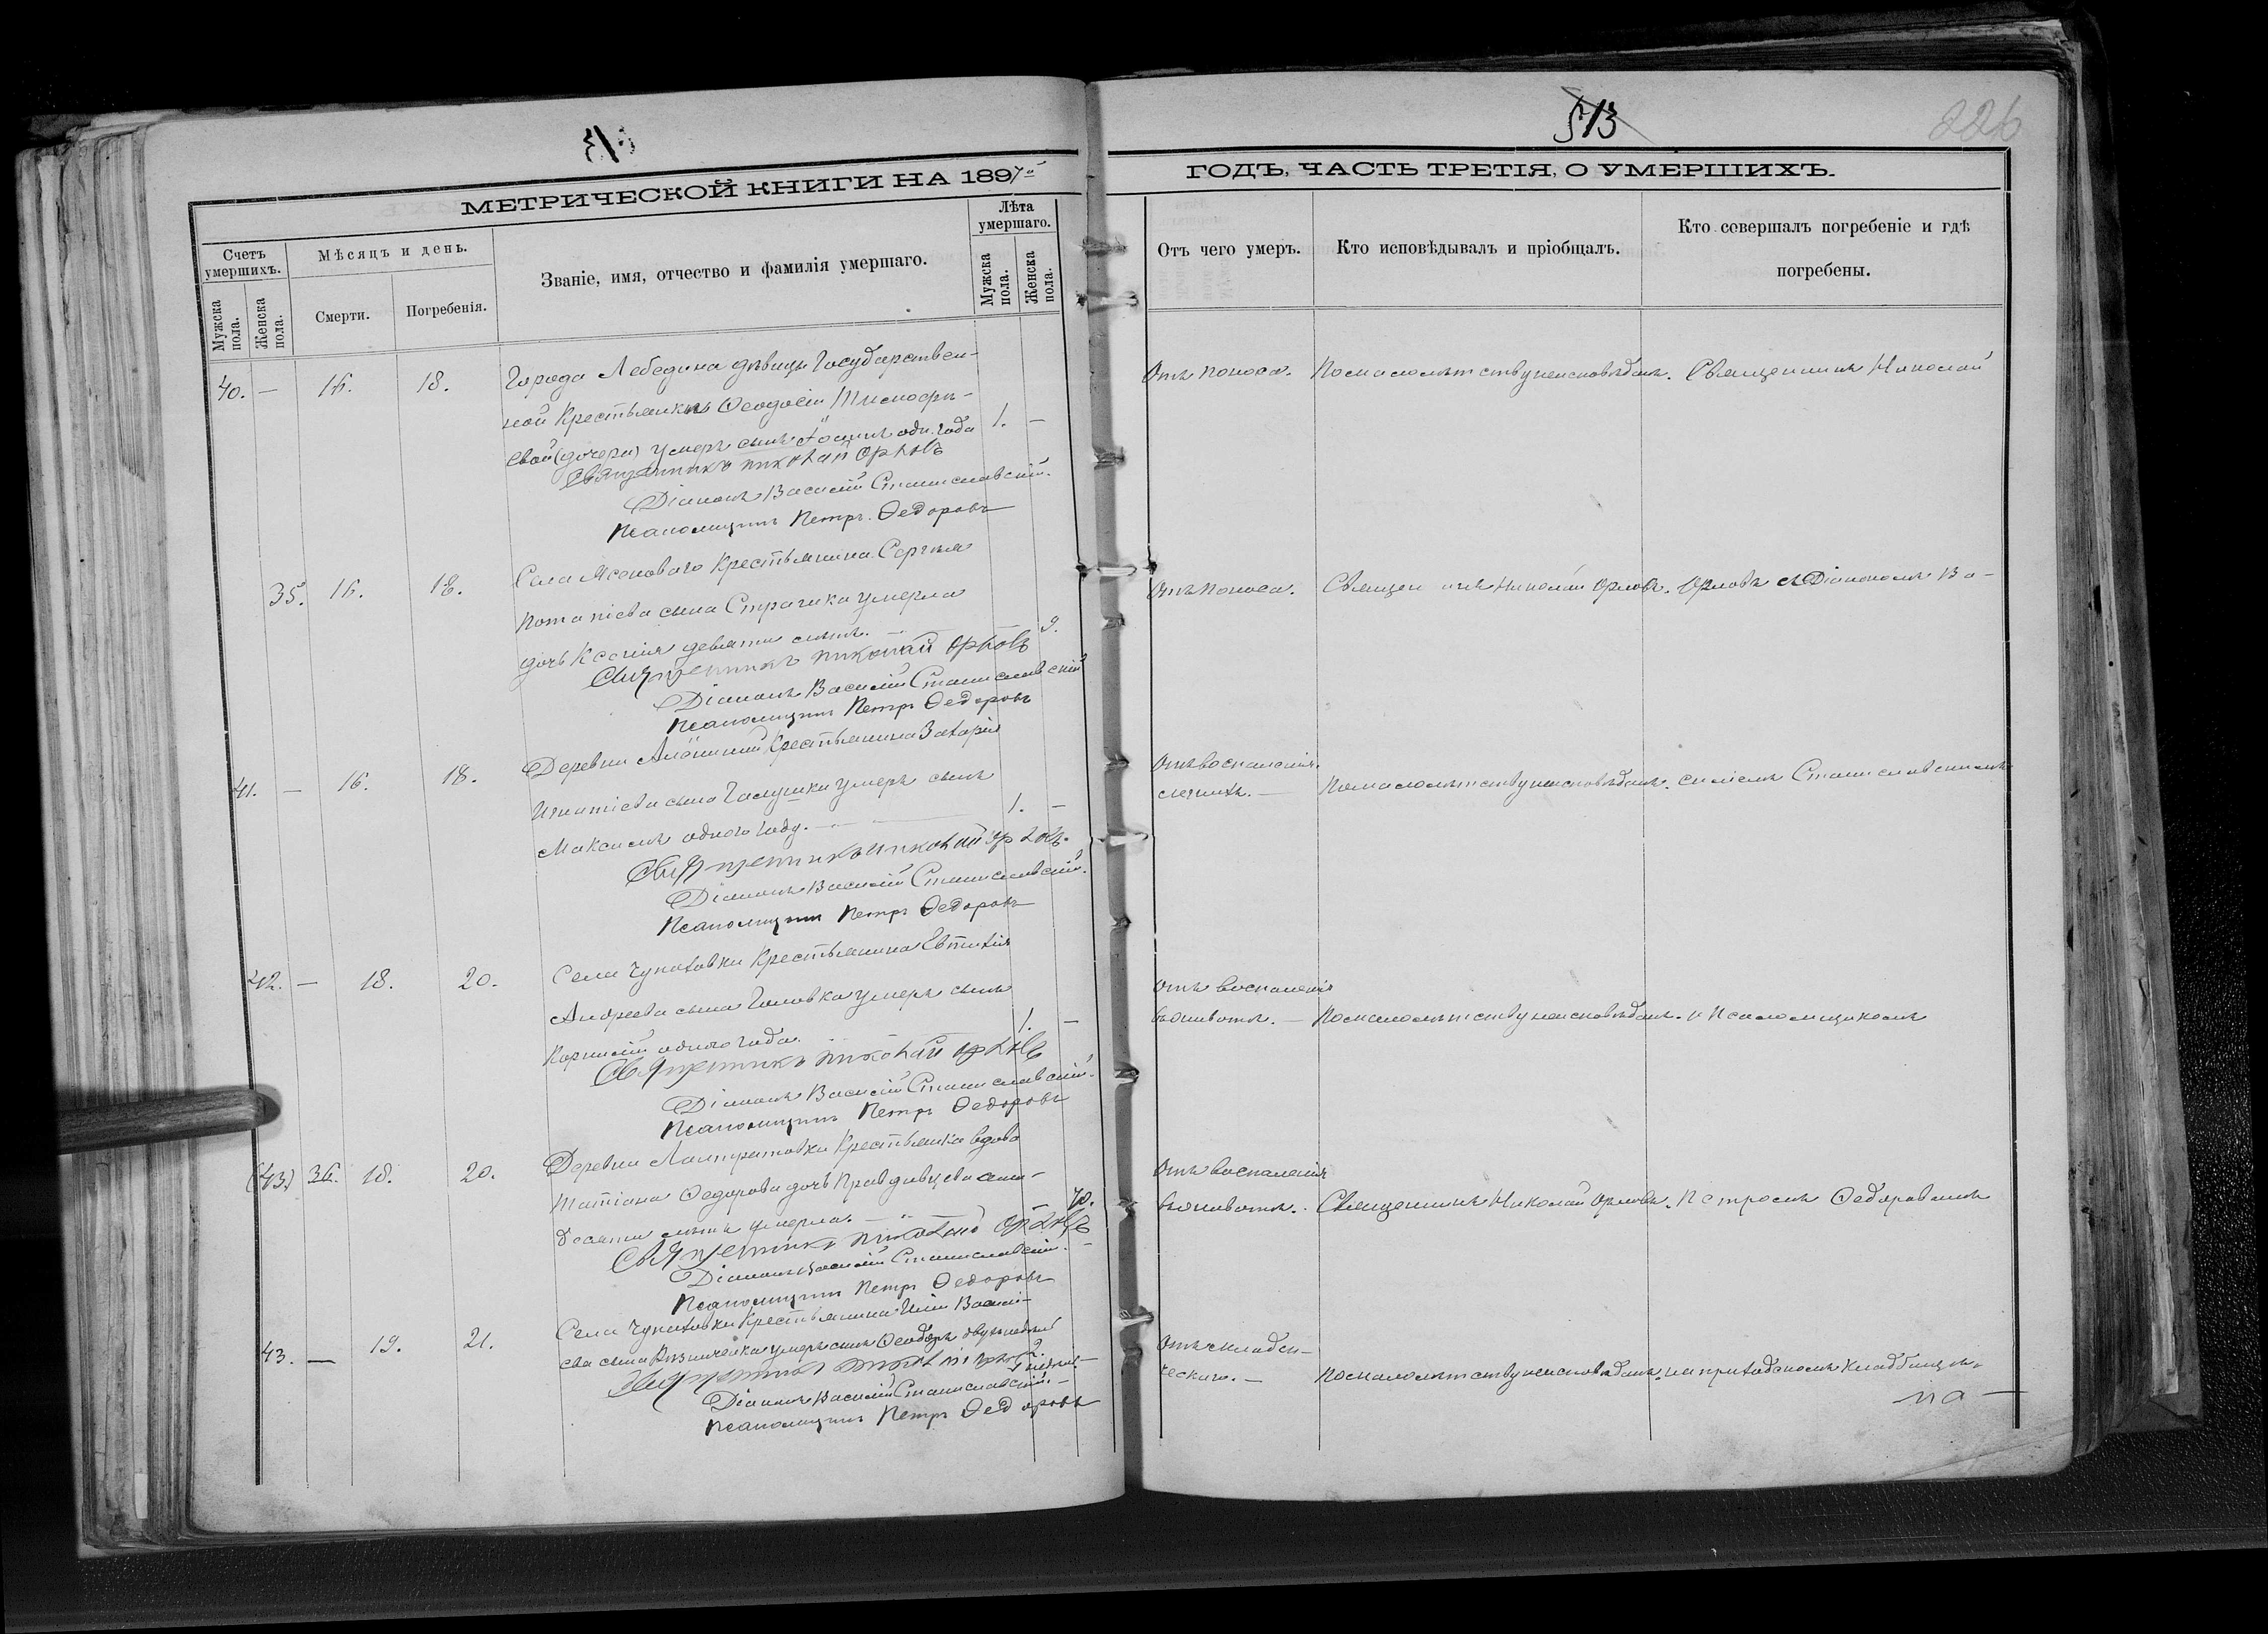 513
513
226
МЕТРИЧЕСКОЙ КНИГИ НА 1897й
ГОДЪ, ЧАСТЬ ТРЕТІЯ, О УМЕРШИХЪ.
Счетъ умершихъ.
Мужска пола.
Женска пола.
Мѣсяцъ и день.
Смерти.
Погребенія.
Званіе, имя, отчество и фамилія умершаго.
Лѣта умершаго.
Мужска пола.
Женска пола.
Отъ чего умеръ.
Кто исповѣдывалъ и пріобщалъ.
Кто совершалъ погребеніе и гдѣ погребены.
40. — 16. 18. Города Лебедина дѣвицы Государствен-
ной Крестьянки Ѳеодосіи
свой (дочери) умеръ сынъ Іоаннъ одн. года 1. —
Священникъ Николай Орловъ
Діаконъ Василій Станиславскій.
Псаломщикъ Петръ Ѳедоровъ
Отъ поноса. По малолѣтству неисповѣданъ. Священникъ Николай
35. 16. 18. Села Ясеноваго Крестьянина Сергѣя
Потапіева сына Страчика умерла
дочь Ксенія девяти лѣтъ. — 9.
Священникъ Николай Орловъ
Діаконъ Василій Станиславскій
Псаломщикъ Петръ Ѳедоровъ
Отъ поноса. Священникъ Николай Орловъ. Орловъ съ Діакономъ Ва-
41. — 16. 18. Деревни Крестьянина Захарія
Игнатіева сына Галушки умеръ сынъ
Максимъ одного году. — 1. —
Священникъ Николай Орловъ.
Діаконъ Василій Станиславскій.
Псаломщикъ Петръ Ѳедоровъ
Отъ воспаленія
легкихъ. — По малолѣтству неисповѣданъ. силіемъ Станиславскимъ
42. — 18. 20. Села Чупаховки Крестьянина Евтихія
Андреева сына Головка умеръ сынъ
Корнилій одного года. 1. —
Священникъ Николай Орловъ
Діаконъ Василій Станиславскій.
Псаломщикъ Петръ Ѳедоровъ
Отъ воспаленія
въ животѣ. — По малолѣтству неисповѣданъ. и Псаломщикомъ
(43) 36. 18. 20. Деревни Лантратовки Крестьянка вдова
Татіана Ѳедорова дочь Правдивцева семи-
десяти лѣтъ умерла. — 70.
Священникъ Николай Орловъ
Діаконъ Василій Станиславскій.
Псаломщикъ Петръ Ѳедоровъ
Отъ воспаленія
въ животѣ. Священникъ Николай Орловъ. Петромъ Ѳедоровымъ
43. — 19. 21. Села Чупаховки Крестьянина Иліи Василі-
ева сына умеръ сынъ Ѳеодоръ двухнедѣль 2. недѣль —
Священникъ Николай Орловъ
Діаконъ Василій Станиславскій. —
Псаломщикъ Петръ Ѳедоровъ
Отъ младен-
ческаго. — По малолѣтству неисповѣданъ. на приходскомъ кладбищѣ.
на —